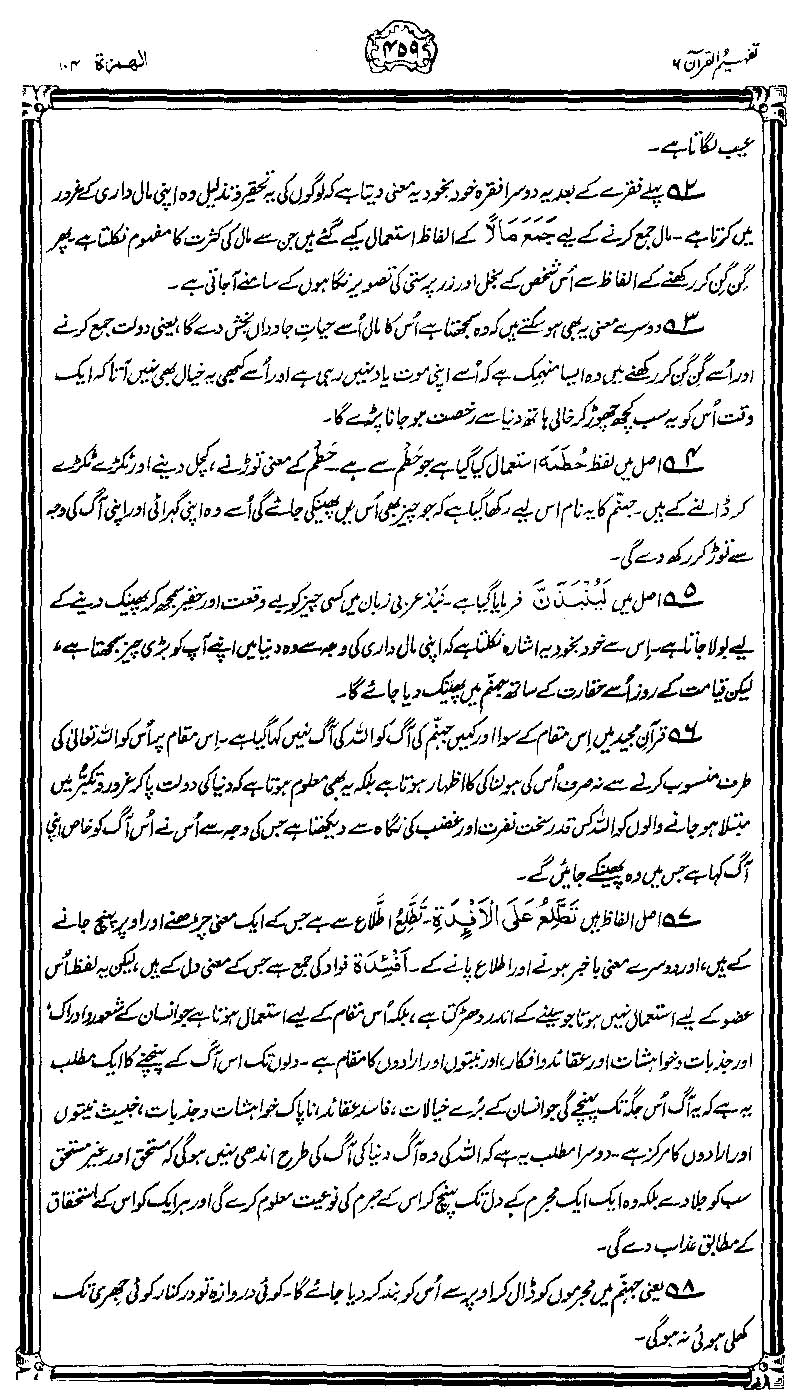 تفہیم القرآن ۶
۴۵۹
الھمزۃ ۱۰۴
عیب لگاتا ہے۔
۲ پہلے فقرے کے بعد یہ دوسرا فقرہ خود بخود یہ معنی دیتا ہے کہ لوگوں کی یہ تحقیر و تذلیل وہ اپنی مال داری کے غرور
میں کرتا ہے۔ مال جمع کرنے کے لیے جَمَعَ مَالًا کے الفاظ استعمال کیے گئے ہیں جن سے مال کی کثرت کا مفہوم نکلتا ہے پھر
گِن گِن کر رکھنے کے الفاظ سے اُس شخص کے بخل اور زر پرستی کی تصویر نگاہوں کے سامنے آجاتی ہے۔
۳ دوسرے معنی یہ بھی ہو سکتے ہیں کہ وہ سمجھتا ہے اُس کا مال اُسے حیاتِ جاوداں بخش دے گا، یعنی دولت جمع کرنے
اور اُسے گِن گِن کر رکھنے میں وہ ایسا منہمک ہے کہ اُسے اپنی موت یاد نہیں رہی ہے اور اُسے کبھی یہ خیال بھی نہیں آتا کہ ایک
وقت اُس کو یہ سب کچھ چھوڑ کر خالی ہاتھ دنیا سے رخصت ہو جانا پڑے گا۔
۴ اصل میں لفظ حُطَمَہ استعمال کیا گیا ہے جو حَطْم سے ہے۔ حَطْم کے معنی توڑنے، کچل دینے اور ٹکڑے ٹکڑے
کر ڈالنے کے ہیں۔ جہنّم کا یہ نام اس لیے رکھا گیا ہے کہ جو چیز بھی اُس میں پھینکی جائے گی اُسے وہ اپنی گہرائی اور اپنی آگ کی وجہ
سے توڑ کر رکھ دے گی۔
۵ اصل میں لَيُنْبَذَنَّ فرمایا گیا ہے۔ نَبْذ عربی زبان میں کسی چیز کو بے وقعت اور حقیر سمجھ کر پھینک دینے کے
لیے بولا جاتا ہے۔ اِس سے خود بخود یہ اشارہ نکلتا ہے کہ اپنی مال داری کی وجہ سے وہ دنیا میں اپنے آپ کو بڑی چیز سمجھتا ہے،
لیکن قیامت کے روز اُسے حقارت کے ساتھ جہنّم میں پھینک دیا جائے گا۔
۶ قرآن مجید میں اِس مقام کے سوا اور کہیں جہنّم کی آگ کو اللہ کی آگ نہیں کہا گیا ہے۔ اِس مقام پر اُس کو اللہ تعالیٰ کی
طرف منسوب کرنے سے نہ صرف اُس کی ہولناکی کا اظہار ہوتا ہے بلکہ یہ بھی معلوم ہوتا ہے کہ دنیا کی دولت پا کر غرور و تکبُّر میں
مبتلا ہو جانے والوں کو اللہ کس قدر سخت نفرت اور غضب کی نگاہ سے دیکھتا ہے جس کی وجہ سے اُس نے اُس آگ کو خاص اپنی
آگ کہا ہے جس میں وہ پھینکے جائیں گے۔
۷ اصل الفاظ ہیں تَطَّلِعُ عَلَى الْاَفْئِدَةِ۔ تَطَّلِعُ اطّلاع سے ہے جس کے ایک معنی چڑھنے اور اوپر پہنچ جانے
کے ہیں، اور دوسرے معنی باخبر ہونے اور اطلاع پانے کے۔ اَفْئِدَة فواد کی جمع ہے جس کے معنی دل کے ہیں، لیکن یہ لفظ اُس
عضو کے لیے استعمال نہیں ہوتا جو سینے کے اندر دھڑکتا ہے، بلکہ اُس مقام کے لیے استعمال ہوتا ہے جو انسان کے شعور و ادراک،
اور جذبات و خواہشات اور عقائد و افکار، اور نیتوں اور ارادوں کا مقام ہے۔ دلوں تک اس آگ کے پہنچنے کا ایک مطلب
یہ ہے کہ یہ آگ اُس جگہ تک پہنچے گی جو انسان کے بُرے خیالات، فاسد عقائد، ناپاک خواہشات و جذبات، خبیث نیتوں
اور ارادوں کا مرکز ہے۔ دوسرا مطلب یہ ہے کہ اللہ کی وہ آگ دنیا کی آگ کی طرح اندھی نہیں ہوگی کہ مستحق اور غیر مستحق
سب کو جلا دے بلکہ وہ ایک ایک مجرم کے دل تک پہنچ کر اس کے جرم کی نوعیت معلوم کرے گی اور ہر ایک کو اس کے استحقاق
کے مطابق عذاب دے گی۔
۸ یعنی جہنّم میں مجرموں کو ڈال کر اوپر سے اُس کو بند کر دیا جائے گا۔ کوئی دروازہ تو درکنار کوئی جھری تک
کھلی ہوئی نہ ہوگی۔